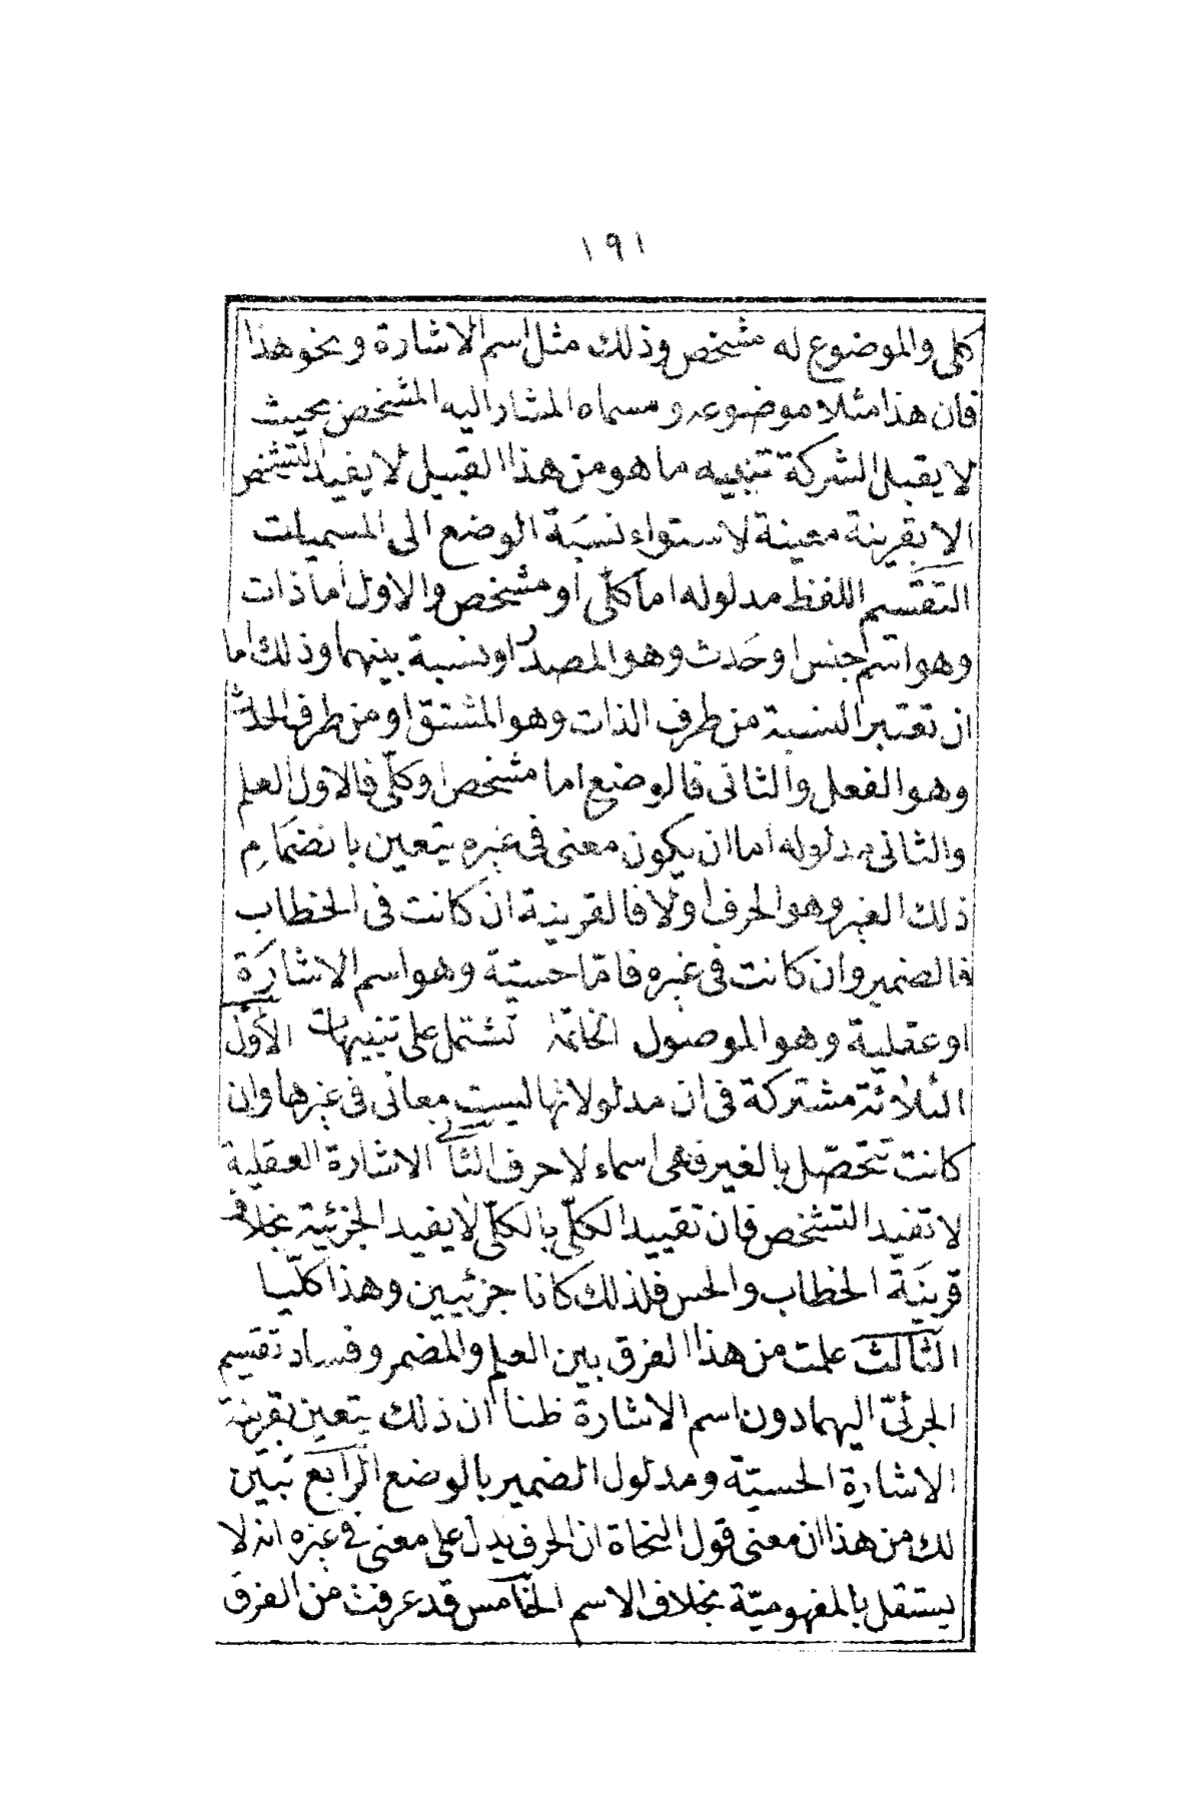 ١٩١
كلى والموضوع له مشخص وذلك مثل اسم الاشارة ونحو هذا
فان هذا مثلا موضوعه ومسماه المشار اليه المشخص بحيث
لا يقبل الشركة تنبيه ما هو من هذا القبيل لا يفيد التشخص
الا بقرينة معينة لاستواء نسبة الوضع الى المسميات
التقسيم اللفظ مدلوله اما كلّى او مشخص والاول اما ذات
وهو اسم جنس او حَدث وهو المصدر او نسبة بينهما وذلك اما
ان تعتبر النسبة من طرف الذات وهو المشتق او من طرف الحدث
وهو الفعل والثانى فالوضع اما مشخص او كلّى فالاول العلم
والثانى مدلوله اما ان يكون معنى فى غيره يتعين بانضمامِ
ذلك الغير وهو الحرف اولا فالقرينة ان كانت فى الخطاب
فالضمير وان كانت فى غيره فامّا حسيّة وهو اسم الاشارَة
او عقلية وهو الموصول الخاتمة تشتمل على تنبيهات الأوّل
الثلاثة مشتركة فى ان مدلولاتها ليست معانى فى غيرها وان
كانت تتحصّل بالغير فهى اسماء لا حرف الثانى الاشارة العقلية
لا تفيد التشخص فان تقييد الكلّى بالكلّى لا يفيد الجزئية بخلاف
قرينَة الخطاب والحس فلذلك كانا جزئيين وهذا كلّيا
الثالث علمت من هذا الفرق بين العلم والمضمر وفساد تقسيم
الجزئىّ اليهما دون اسم الاشارة ظنا ان ذلك يتعين بقرينة
الاشارة الحسيّة ومدلول الضمير بالوضع الرابع تبيّن
لك من هذا ان معنى قول النحاة ان الحرف يدل على معنى فى غيره انه لا
يستقل بالمفهوميّة بخلاف الاسم الخامس قد عرفت من الفرق